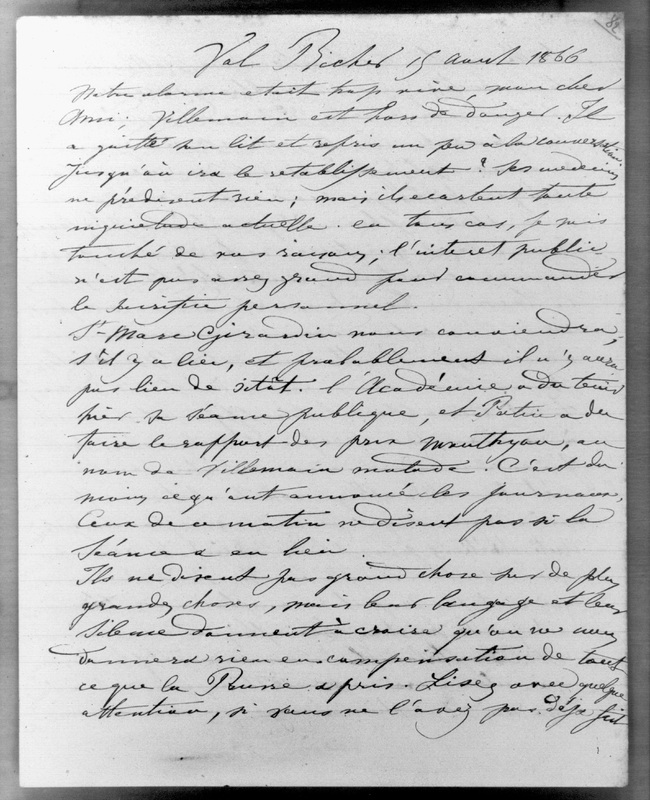 82
Val Richer 15 aout 1866
Notre alarme etait trop vive, mon cher
Ami; Villemain est hors de danger. Il
a quitté son lit et repris un peu à la conversation.
Jusqu'où ira le retablissement? Ses medecins
ne prédisent rien; mais ils ecartent toute
inquietude actuelle. en tous cas, je suis
touché de vos raisons; l'interet public
n'est pas assez grand pour commander
le sacrifice personnel.
St Marc Girardin nous conviendra,
s'il y a lieu, et probablement il n'y aura
pas lieu de sitôt. l'Académie a du tenir
hier sa séance publique, et Patin a du
faire le rapport des prix Monthyon, au
nom de Villemain malade. C'est du
moins ce qu'ont annoncé les journaux.
Ceux de ce matin ne disent pas si la
séance a eu lieu.
Ils ne disent pas grand chose sur de plus
grandes choses, mais leur langage et leur
silence donnent à croire qu'on ne nous
donnera rien en compensation de tout
ce que la Prusse a pris. Lisez avec quelque
attention, si vous ne l'avez pas déja fait